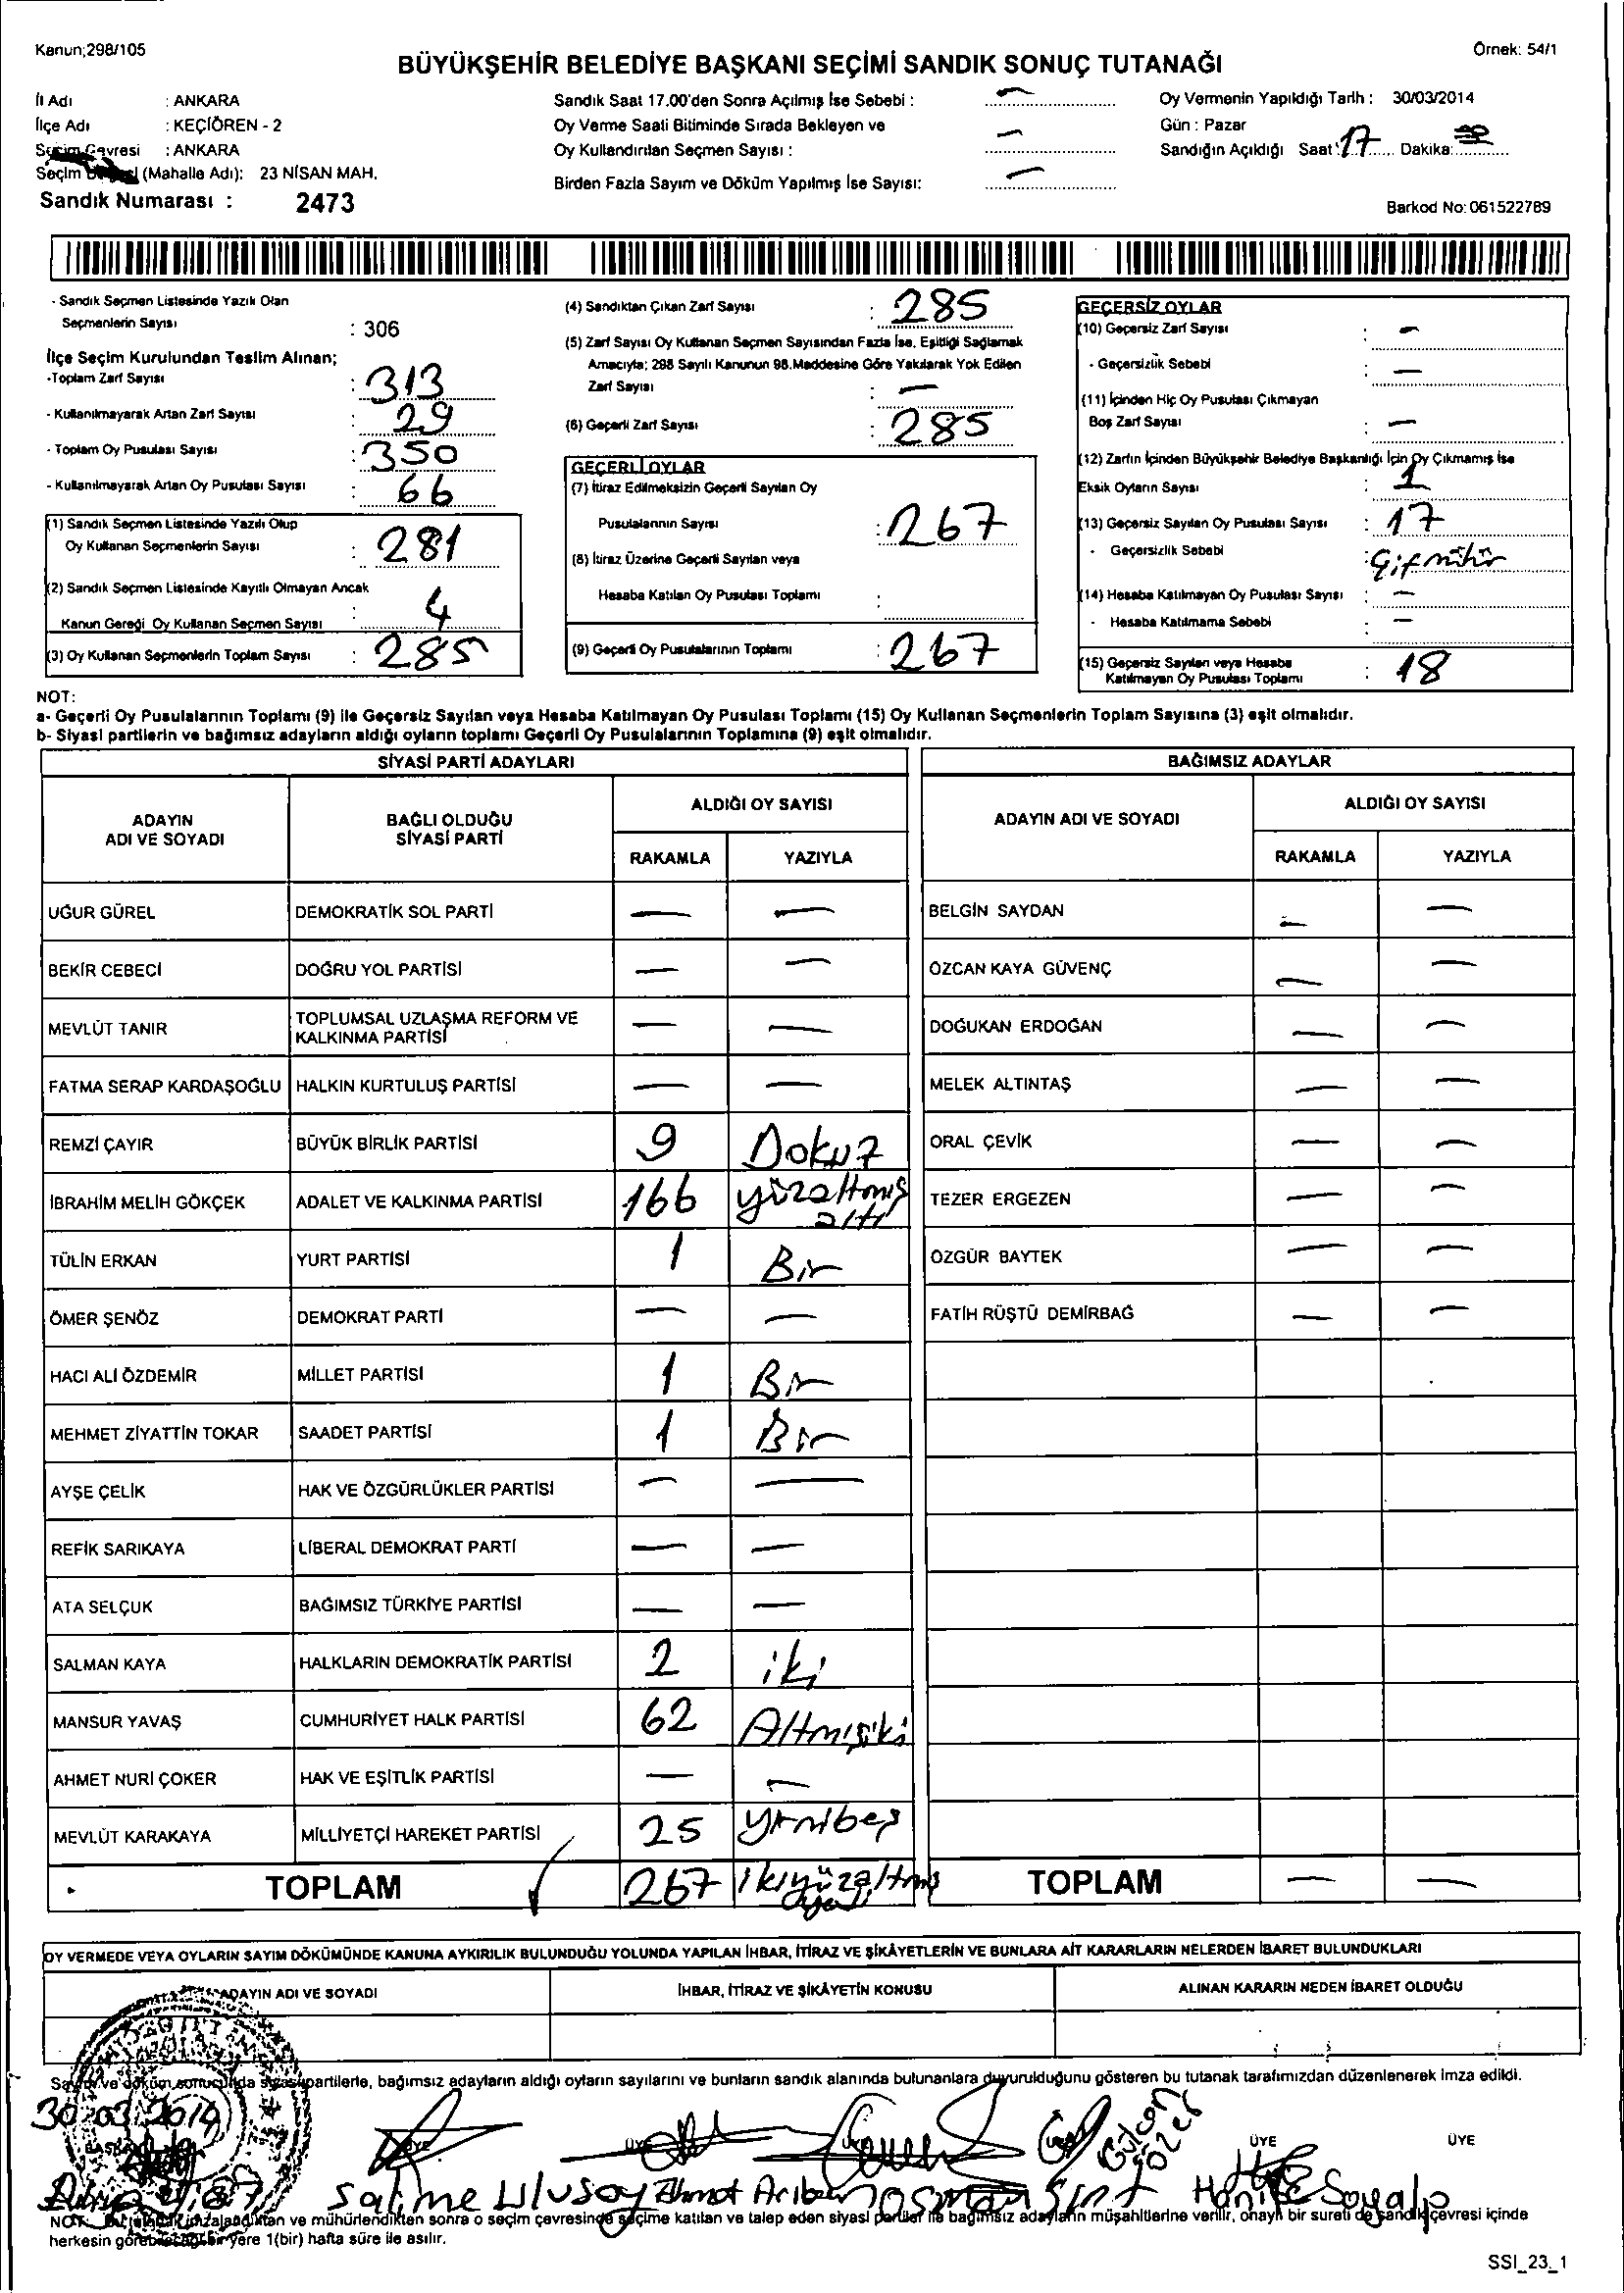 Kanun;298/105
Örnek: 54/1
BÜYÜKŞEHİR BELEDİYE BAŞKANI SEÇİMİ SANDIK SONUÇ TUTANAĞI
İl Adı : ANKARA
İlçe Adı : KEÇİÖREN - 2
Seçim Çevresi : ANKARA
Seçim (Mahalle Adı): 23 NİSAN MAH.
Sandık Numarası : 2473
Sandık Saat 17.00'den Sonra Açılmış İse Sebebi : —
Oy Verme Saati Bitiminde Sırada Bekleyen ve
Oy Kullandırılan Seçmen Sayısı : —
Birden Fazla Sayım ve Döküm Yapılmış İse Sayısı: —
Oy Vermenin Yapıldığı Tarih : 30/03/2014
Gün : Pazar
Sandığın Açıldığı Saat : 17 Dakika:
Barkod No: 061522789
- Sandık Seçmen Listesinde Yazılı Olan
Seçmenlerin Sayısı : 306
İlçe Seçim Kurulundan Teslim Alınan;
-Toplam Zarf Sayısı : 313
- Kullanılmayarak Artan Zarf Sayısı : 29
- Toplam Oy Pusulası Sayısı : 350
- Kullanılmayarak Artan Oy Pusulası Sayısı : 66
(1) Sandık Seçmen Listesinde Yazılı Olup
Oy Kullanan Seçmenlerin Sayısı : 281
(2) Sandık Seçmen Listesinde Kayıtlı Olmayan Ancak
Kanun Gereği Oy Kullanan Seçmen Sayısı : 4
(3) Oy Kullanan Seçmenlerin Toplam Sayısı : 285
(4) Sandıktan Çıkan Zarf Sayısı : 285
(5) Zarf Sayısı Oy Kullanan Seçmen Sayısından Fazla İse, Eşitliği Sağlamak
Amacıyla; 298 Sayılı Kanunun 98.Maddesine Göre Yakılarak Yok Edilen
Zarf Sayısı : —
(6) Geçerli Zarf Sayısı : 285
GEÇERLİ OYLAR
(7) İtiraz Edilmeksizin Geçerli Sayılan Oy
Pusulalarının Sayısı : 267
(8) İtiraz Üzerine Geçerli Sayılan veya
Hesaba Katılan Oy Pusulası Toplamı :
(9) Geçerli Oy Pusulalarının Toplamı : 267
GEÇERSİZ OYLAR
(10) Geçersiz Zarf Sayısı : —
- Geçersizlik Sebebi : —
(11) İçinden Hiç Oy Pusulası Çıkmayan
Boş Zarf Sayısı : —
(12) Zarfın İçinden Büyükşehir Belediye Başkanlığı İçin Oy Çıkmamış İse
Eksik Oyların Sayısı : 1
(13) Geçersiz Sayılan Oy Pusulası Sayısı : 17
- Geçersizlik Sebebi : Çift mühür
(14) Hesaba Katılmayan Oy Pusulası Sayısı : —
- Hesaba Katılmama Sebebi : —
(15) Geçersiz Sayılan veya Hesaba
Katılmayan Oy Pusulası Toplamı : 18
NOT:
a- Geçerli Oy Pusulalarının Toplamı (9) ile Geçersiz Sayılan veya Hesaba Katılmayan Oy Pusulası Toplamı (15) Oy Kullanan Seçmenlerin Toplam Sayısına (3) eşit olmalıdır.
b- Siyasi partilerin ve bağımsız adayların aldığı oyların toplamı Geçerli Oy Pusulalarının Toplamına (9) eşit olmalıdır.
SİYASİ PARTİ ADAYLARI
ADAYIN ADI VE SOYADI
BAĞLI OLDUĞU SİYASİ PARTİ
ALDIĞI OY SAYISI
RAKAMLA YAZIYLA
UĞUR GÜREL DEMOKRATİK SOL PARTİ — —
BEKİR CEBECİ DOĞRU YOL PARTİSİ — —
MEVLÜT TANIR TOPLUMSAL UZLAŞMA REFORM VE KALKINMA PARTİSİ — —
FATMA SERAP KARDAŞOĞLU HALKIN KURTULUŞ PARTİSİ — —
REMZİ ÇAYIR BÜYÜK BİRLİK PARTİSİ 9 Dokuz
İBRAHİM MELİH GÖKÇEK ADALET VE KALKINMA PARTİSİ 166 yüzaltmış altı
TÜLİN ERKAN YURT PARTİSİ 1 Bir
ÖMER ŞENÖZ DEMOKRAT PARTİ — —
HACI ALİ ÖZDEMİR MİLLET PARTİSİ 1 Bir
MEHMET ZİYATTİN TOKAR SAADET PARTİSİ 1 Bir
AYŞE ÇELİK HAK VE ÖZGÜRLÜKLER PARTİSİ — —
REFİK SARIKAYA LİBERAL DEMOKRAT PARTİ — —
ATA SELÇUK BAĞIMSIZ TÜRKİYE PARTİSİ — —
SALMAN KAYA HALKLARIN DEMOKRATİK PARTİSİ 2 iki
MANSUR YAVAŞ CUMHURİYET HALK PARTİSİ 62 Altmışiki
AHMET NURİ ÇOKER HAK VE EŞİTLİK PARTİSİ — —
MEVLÜT KARAKAYA MİLLİYETÇİ HAREKET PARTİSİ 25 yirmibeş
TOPLAM 267 ikiyüzaltmış yedi
BAĞIMSIZ ADAYLAR
ADAYIN ADI VE SOYADI
ALDIĞI OY SAYISI
RAKAMLA YAZIYLA
BELGİN SAYDAN — —
ÖZCAN KAYA GÜVENÇ — —
DOĞUKAN ERDOĞAN — —
MELEK ALTINTAŞ — —
ORAL ÇEVİK — —
TEZER ERGEZEN — —
ÖZGÜR BAYTEK — —
FATİH RÜŞTÜ DEMİRBAĞ — —
TOPLAM — —
OY VERMEDE VEYA OYLARIN SAYIM DÖKÜMÜNDE KANUNA AYKIRILIK BULUNDUĞU YOLUNDA YAPILAN İHBAR, İTİRAZ VE ŞİKÂYETLERİN VE BUNLARA AİT KARARLARIN NELERDEN İBARET BULUNDUKLARI
ADAYIN ADI VE SOYADI
İHBAR, İTİRAZ VE ŞİKÂYETİN KONUSU
ALINAN KARARIN NEDEN İBARET OLDUĞU
Sayım ve döküm sonucunda siyasi partilerle, bağımsız adayların aldığı oyların sayılarını ve bunların sandık alanında bulunanlara duyurulduğunu gösteren bu tutanak tarafımızdan düzenlenerek imza edildi.
30.03.2014
ÜYE ÜYE
Gülcan Gözel
Salime Ulusoy Ahmet Osman Hanife Soyalp
NOT: imzalandıktan ve mühürlendikten sonra o seçim çevresinde seçime katılan ve talep eden siyasi partiler ile bağımsız adayların müşahitlerine verilir, onaylı bir sureti de sandık çevresi içinde
herkesin görebileceği bir yere 1(bir) hafta süre ile asılır.
SSI_23_1